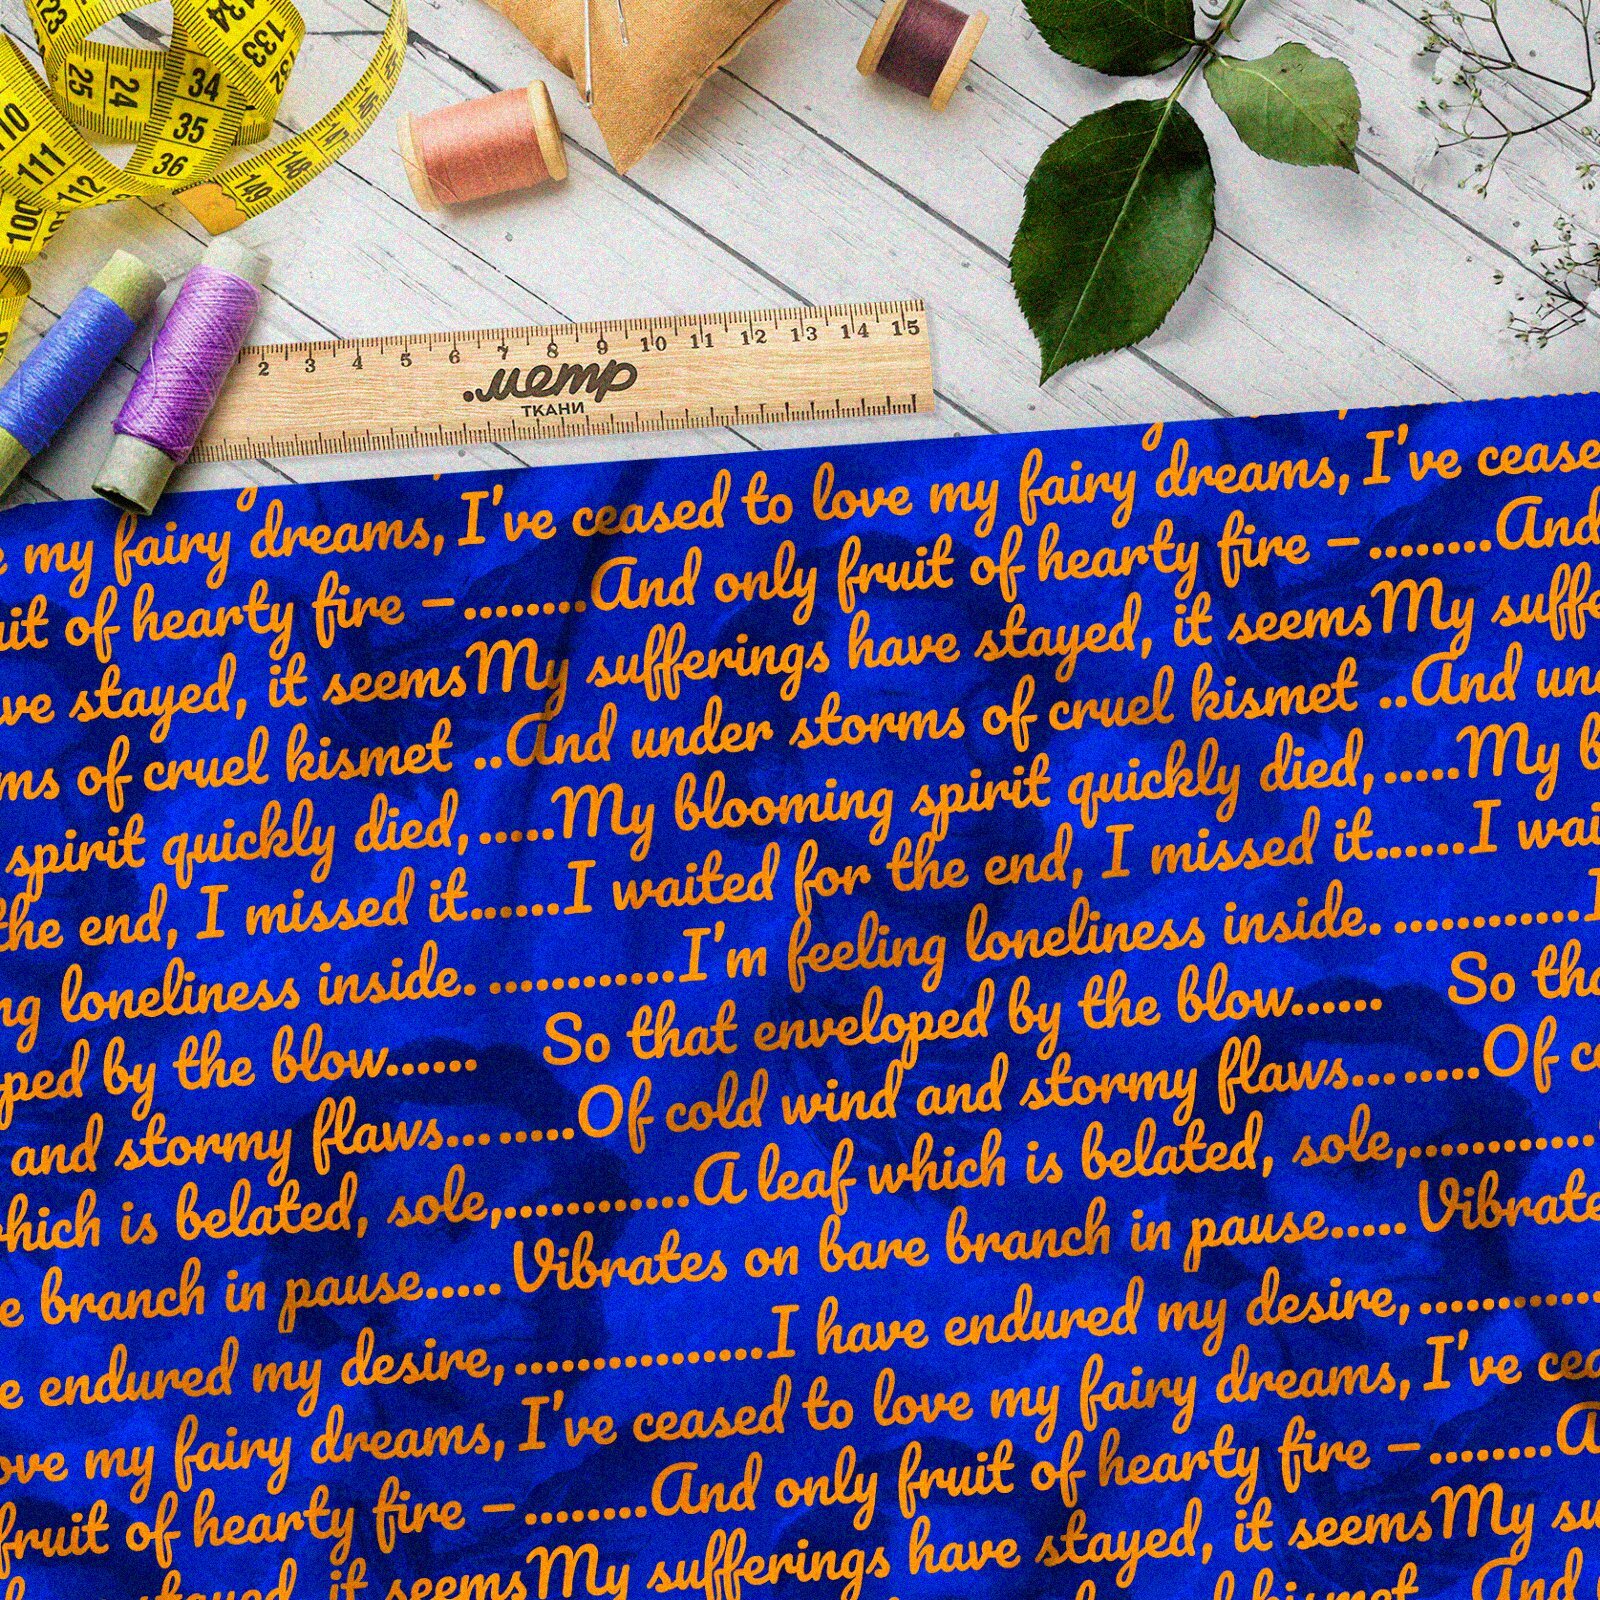 134
133
25
24
34
35
36
111
112
100
148
149
2 3 4 5 6 7 8 9 10 11 12 13 14 15
.метр
ТКАНИ
my fairy dreams, I've ceased to love my fairy dreams, I've cease
of hearty fire –........And only fruit of hearty fire –........And
stayed, it seemsMy sufferings have stayed, it seemsMy suffe
of cruel kismet ..And under storms of cruel kismet ..And un
spirit quickly died,.....My blooming spirit quickly died,.....My b
the end, I missed it......I waited for the end, I missed it......I wai
ng loneliness inside. ............I'm feeling loneliness inside. ............I
ped by the blow...... So that enveloped by the blow...... So tha
and stormy flaws.........Of cold wind and stormy flaws.........Of c
which is belated, sole,............A leaf which is belated, sole,............
e branch in pause.....Vibrates on bare branch in pause.....Vibrate
e endured my desire,................I have endured my desire,............
ove my fairy dreams, I've ceased to love my fairy dreams, I've cea
fruit of hearty fire –........And only fruit of hearty fire –........A
stayed, it seemsMy sufferings have stayed, it seemsMy su
kismet ..And